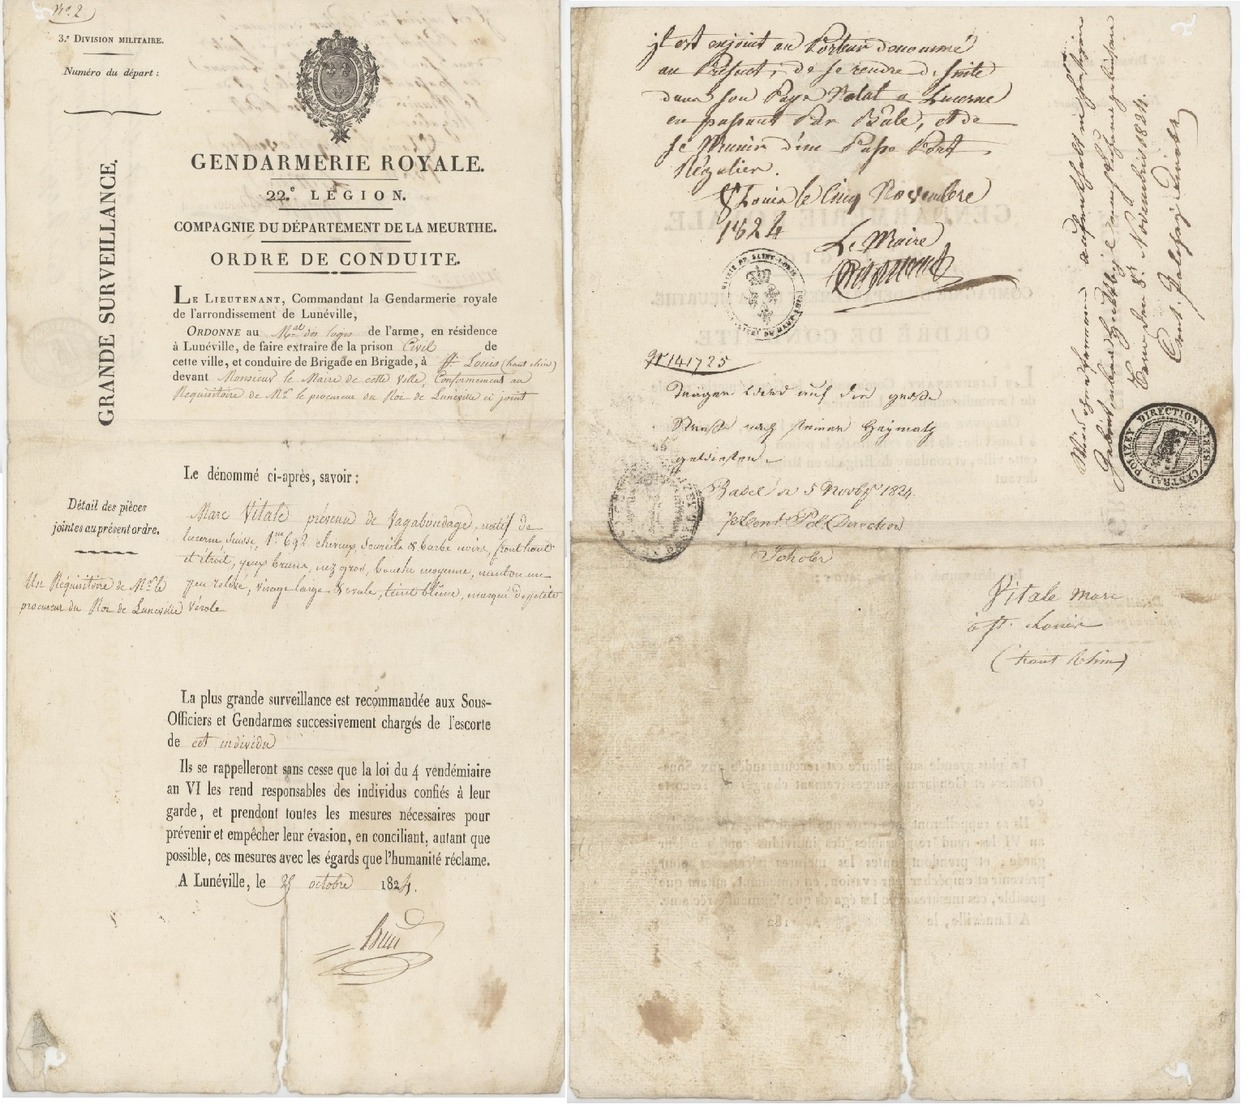 N.º 2
3.e Division militaire.
Numéro du départ :
GRANDE SURVEILLANCE.
GENDARMERIE ROYALE.
22.e LÉGION.
COMPAGNIE DU DÉPARTEMENT DE LA MEURTHE.
ORDRE DE CONDUITE.
Le Lieutenant, Commandant la Gendarmerie royale
de l'arrondissement de Lunéville,
Ordonne au Mal des logis de l'arme, en résidence
à Lunéville, de faire extraire de la prison Civil de
cette ville, et conduire de Brigade en Brigade, à St Louis (haut rhin)
devant Monsieur le Maire de cette ville, Conformement au
Requisitoire de Mr le procureur du Roi de Lunéville ci joint
Le dénommé ci-après, savoir :
Détail des pièces
jointes au présent ordre.
Marc Vitale prévenu de Vagabondage, natif de
lucerne Suisse, 1m 692 cheveux, sourcils & barbe noirs, front haut
et étroit, yeux bruns, nez gros, bouche moyenne, menton un
peu relevé, visage large & ovale, teint blême, marqué de petite
vérole
Un Réquisitoire de Mr le
procureur du Roi de Lunéville
La plus grande surveillance est recommandée aux Sous-
Officiers et Gendarmes successivement chargés de l'escorte
de cet individu
Ils se rappelleront sans cesse que la loi du 4 vendémiaire
an VI les rend responsables des individus confiés à leur
garde, et prendont toutes les mesures nécessaires pour
prévenir et empêcher leur évasion, en conciliant, autant que
possible, ces mesures avec les égards que l'humanité réclame.
A Lunéville, le 25 octobre 1824.
jl est enjoint au Porteur denommé
au Présent, de se rendre de suite
dans son Pays Natal a Lucerne
en passant Par Bâle, et de
se Munir d'un Passe Port
Régulier.
St Louis le Cinq Novembre
1824
Le Maire
MAIRIE DE SAINT-LOUIS
No 141725
auf die
Straße nach seiner Heymath
gewiesen
Basel den 5 Novbr 1824.
Schober
8n Novembris 1824.
CENTRAL POLIZEY DIRECTION
Vitale Marc
à St. Louis
(haut Rhin)